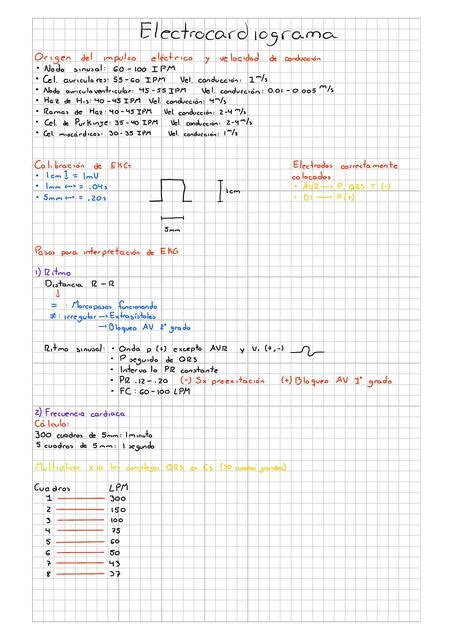 Electrocardiograma
Origen del impulso eléctrico y velocidad de conducción
• Nodo sinusal: 60-100 IPM
• Cel. auriculares: 55-60 IPM Vel. conducción: 1 m/s
• Nodo auriculoventricular: 45-55 IPM Vel. conducción: 0.01-0.005 m/s
• Haz de His: 40-45 IPM Vel. conducción: 4 m/s
• Ramas de Haz: 40-45 IPM Vel. conducción: 2-4 m/s
• Cel. de Purkinje: 35-40 IPM Vel. conducción: 2-4 m/s
• Cel. miocárdicos: 30-35 IPM Vel. conducción: 1 m/s
Calibración de EKG
• 1cm ↕ = 1mV
• 1mm ↔ = .04s
• 5mm ↔ = .20s
1cm
5mm
Electrodos correctamente
colocados
• AVR → P, QRS, T (-)
• DI → P (+)
Pasos para interpretación de EKG
1) Ritmo
Distancia R-R
↓
= : Marcapasos funcionando
≠ : irregular → Extrasístoles
→ Bloqueo AV 2° grado
Ritmo sinusal: • Onda p (+) excepto AVR y V1 (+,-)
• P seguido de QRS
• Intervalo PR constante
• PR .12-.20 (-) Sx preexitación (+) Bloqueo AV 1° grado
• FC: 60-100 LPM
2) Frecuencia cardiaca
Cálculo:
300 cuadros de 5mm: 1minuto
5 cuadros de 5mm: 1 segundo
Multiplicar x10 los complejos QRS en 6s (30 cuadros grandes)
Cuadros LPM
1 300
2 150
3 100
4 75
5 60
6 50
7 43
8 37